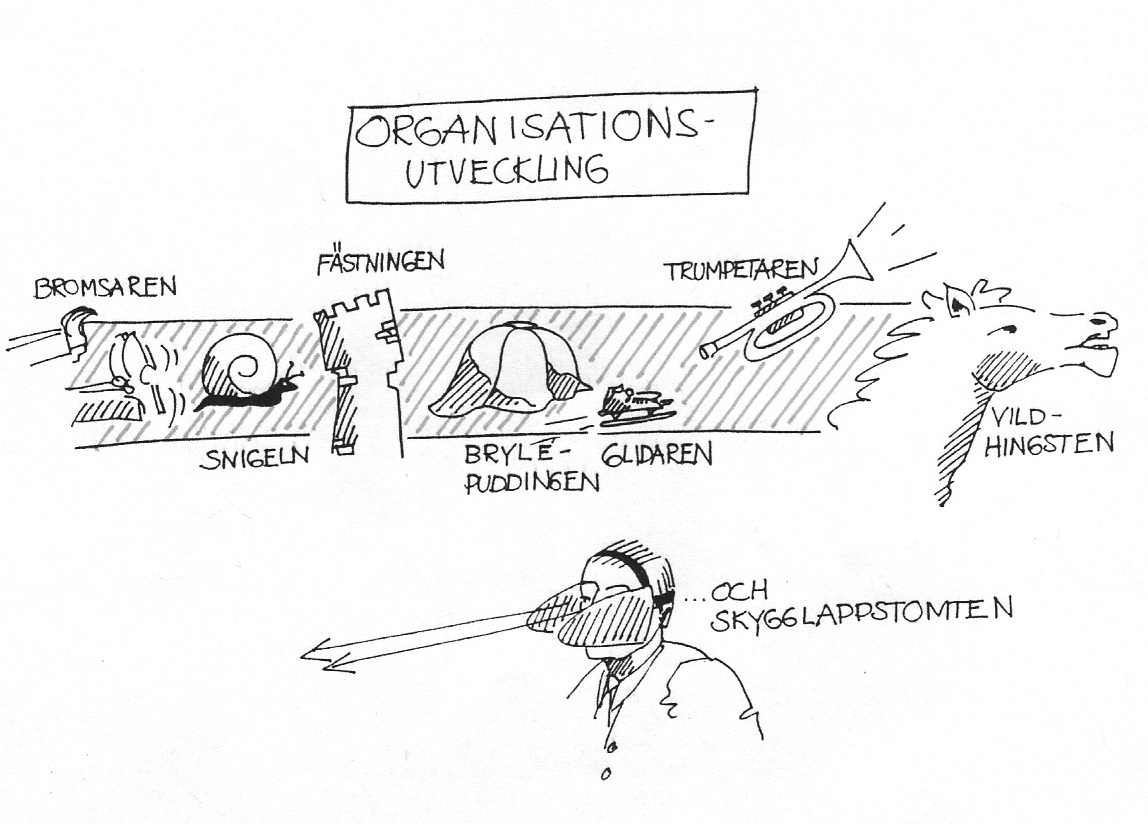 ORGANISATIONS-
UTVECKLING
BROMSAREN
FÄSTNINGEN
TRUMPETAREN
SNIGELN
BRYLE-
PUDDINGEN
GLIDAREN
VILD-
HINGSTEN
...OCH
SKYGGLAPPSTOMTEN